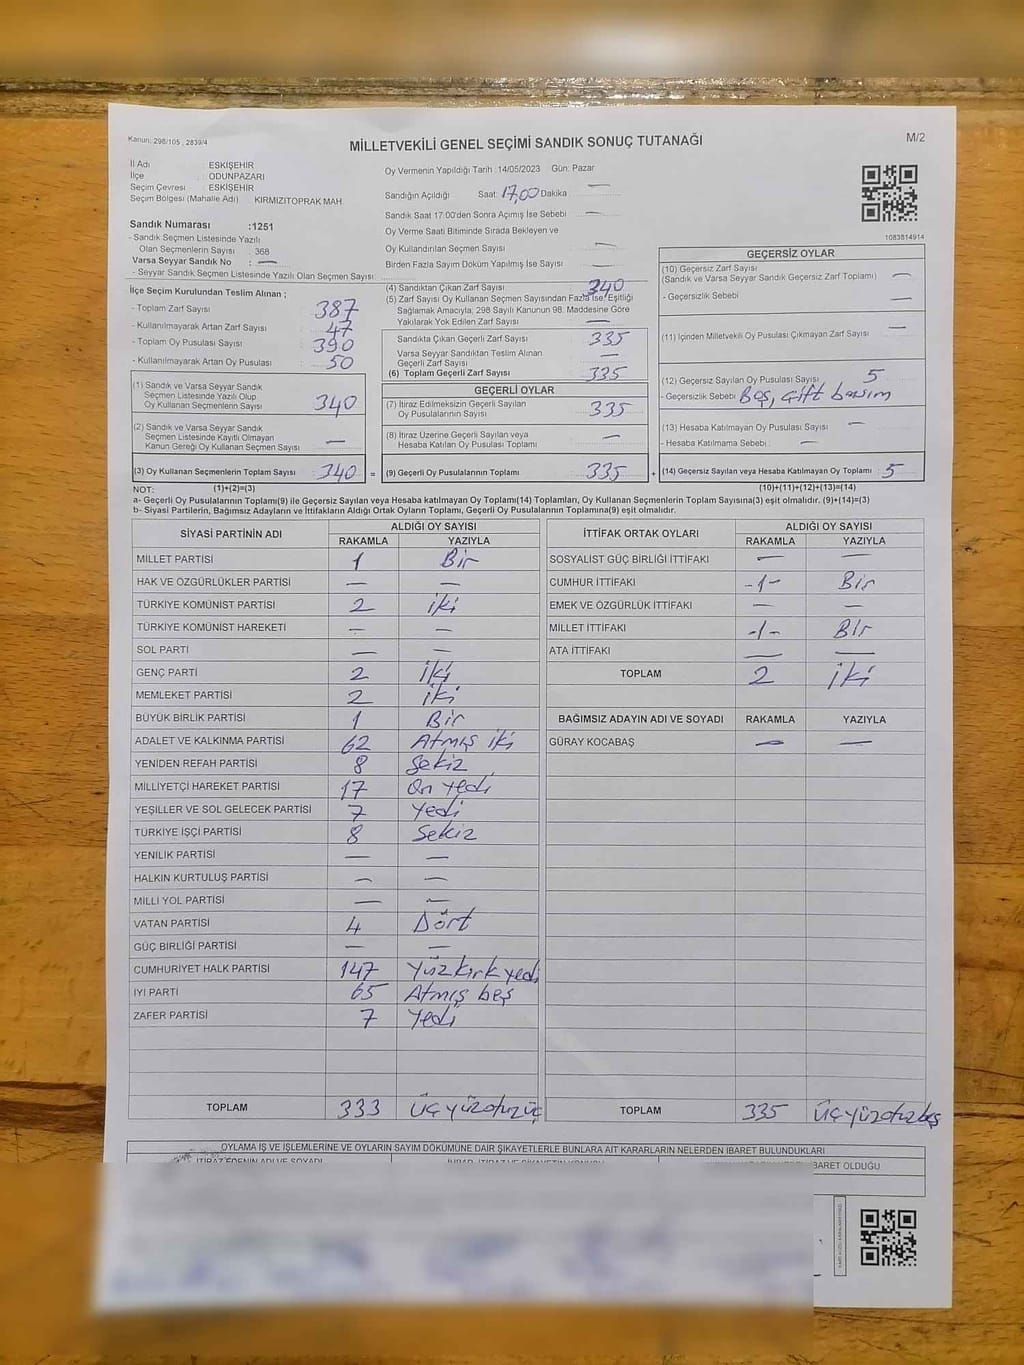 Kanun: 298/105 , 2839/4
MİLLETVEKİLİ GENEL SEÇİMİ SANDIK SONUÇ TUTANAĞI
M/2
İl Adı : ESKİŞEHİR
İlçe : ODUNPAZARI
Seçim Çevresi : ESKİŞEHİR
Seçim Bölgesi (Mahalle Adı) KIRMIZITOPRAK MAH
Sandık Numarası :1251
- Sandık Seçmen Listesinde Yazılı
Olan Seçmenlerin Sayısı : 368
Varsa Seyyar Sandık No : —
- Seyyar Sandık Seçmen Listesinde Yazılı Olan Seçmen Sayısı
Oy Vermenin Yapıldığı Tarih :14/05/2023 Gün: Pazar
Sandığın Açıldığı Saat: 17,00 Dakika —
Sandık Saat 17:00'den Sonra Açımış İse Sebebi —
Oy Verme Saati Bitiminde Sırada Bekleyen ve
Oy Kullandırılan Seçmen Sayısı —
Birden Fazla Sayım Döküm Yapılmış İse Sayısı —
1083814914
İlçe Seçim Kurulundan Teslim Alınan ;
- Toplam Zarf Sayısı 387
- Kullanılmayarak Artan Zarf Sayısı 47
- Toplam Oy Pusulası Sayısı 390
- Kullanılmayarak Artan Oy Pusulası 50
(1) Sandık ve Varsa Seyyar Sandık
Seçmen Listesinde Yazılı Olup
Oy Kullanan Seçmenlerin Sayısı 340
(2) Sandık ve Varsa Seyyar Sandık
Seçmen Listesinde Kayıtlı Olmayan
Kanun Gereği Oy Kullanan Seçmen Sayısı —
(3) Oy Kullanan Seçmenlerin Toplam Sayısı 340 =
(4) Sandıktan Çıkan Zarf Sayısı 340
(5) Zarf Sayısı Oy Kullanan Seçmen Sayısından Fazla İse, Eşitliği
Sağlamak Amacıyla; 298 Sayılı Kanunun 98. Maddesine Göre
Yakılarak Yok Edilen Zarf Sayısı —
Sandıkta Çıkan Geçerli Zarf Sayısı 335
Varsa Seyyar Sandıktan Teslim Alınan
Geçerli Zarf Sayısı —
(6) Toplam Geçerli Zarf Sayısı 335
GEÇERLİ OYLAR
(7) İtiraz Edilmeksizin Geçerli Sayılan
Oy Pusulalarının Sayısı 335
(8) İtiraz Üzerine Geçerli Sayılan veya
Hesaba Katılan Oy Pusulası Toplamı —
(9) Geçerli Oy Pusulalarının Toplamı 335 +
GEÇERSİZ OYLAR
(10) Geçersiz Zarf Sayısı
(Sandık ve Varsa Seyyar Sandık Geçersiz Zarf Toplamı) —
- Geçersizlik Sebebi —
(11) İçinden Milletvekili Oy Pusulası Çıkmayan Zarf Sayısı —
(12) Geçersiz Sayılan Oy Pusulası Sayısı 5
- Geçersizlik Sebebi Boş, çift basım
(13) Hesaba Katılmayan Oy Pusulası Sayısı —
- Hesaba Katılmama Sebebi : —
(14) Geçersiz Sayılan veya Hesaba Katılmayan Oy Toplamı 5
NOT: (1)+(2)=(3) (10)+(11)+(12)+(13)=(14)
a- Geçerli Oy Pusulalarının Toplamı(9) ile Geçersiz Sayılan veya Hesaba katılmayan Oy Toplamı(14) Toplamları, Oy Kullanan Seçmenlerin Toplam Sayısına(3) eşit olmalıdır. (9)+(14)=(3)
b- Siyasi Partilerin, Bağımsız Adayların ve İttifakların Aldığı Ortak Oyların Toplamı, Geçerli Oy Pusulalarının Toplamına(9) eşit olmalıdır.
SİYASİ PARTİNİN ADI ALDIĞI OY SAYISI
RAKAMLA YAZIYLA
MİLLET PARTİSİ 1 Bir
HAK VE ÖZGÜRLÜKLER PARTİSİ — —
TÜRKİYE KOMÜNİST PARTİSİ 2 iki
TÜRKİYE KOMÜNİST HAREKETİ — —
SOL PARTİ — —
GENÇ PARTİ 2 iki
MEMLEKET PARTİSİ 2 iki
BÜYÜK BİRLİK PARTİSİ 1 Bir
ADALET VE KALKINMA PARTİSİ 62 Atmış iki
YENİDEN REFAH PARTİSİ 8 Sekiz
MİLLİYETÇİ HAREKET PARTİSİ 17 On yedi
YEŞİLLER VE SOL GELECEK PARTİSİ 7 Yedi
TÜRKİYE İŞÇİ PARTİSİ 8 Sekiz
YENİLİK PARTİSİ — —
HALKIN KURTULUŞ PARTİSİ — —
MİLLİ YOL PARTİSİ — —
VATAN PARTİSİ 4 Dört
GÜÇ BİRLİĞİ PARTİSİ — —
CUMHURİYET HALK PARTİSİ 147 Yüzkırkyedi
İYİ PARTİ 65 Atmış beş
ZAFER PARTİSİ 7 Yedi
TOPLAM 333 Üçyüzotuzüç
İTTİFAK ORTAK OYLARI ALDIĞI OY SAYISI
RAKAMLA YAZIYLA
SOSYALİST GÜÇ BİRLİĞİ İTTİFAKI — —
CUMHUR İTTİFAKI -1- Bir
EMEK VE ÖZGÜRLÜK İTTİFAKI — —
MİLLET İTTİFAKI -1- Bir
ATA İTTİFAKI — —
TOPLAM 2 iki
BAĞIMSIZ ADAYIN ADI VE SOYADI RAKAMLA YAZIYLA
GÜRAY KOCABAŞ — —
TOPLAM 335 Üçyüzotuzbeş
OYLAMA İŞ VE İŞLEMLERİNE VE OYLARIN SAYIM DÖKÜMÜNE DAİR ŞİKAYETLERLE BUNLARA AİT KARARLARIN NELERDEN İBARET BULUNDUKLARI
İTİRAZ EDENİN ADI VE SOYADI
İBARET OLDUĞU